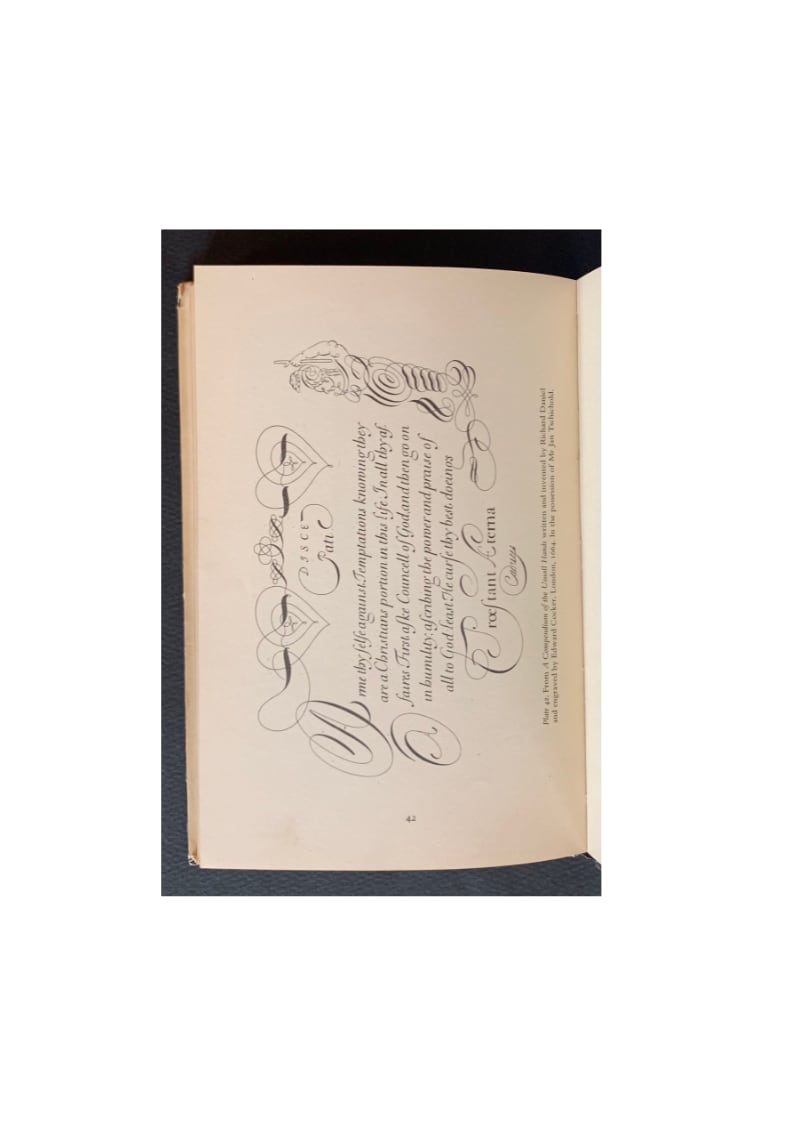 DISCE
Pati.
Arme thy selfe against Temptations knowing they
are a Christians portion in this life. In all thy af:
faires First aske Councell of God, and then go on
in humility; ascribing the power and praise of
all to God least He curse thy best doeings
Præstant Æterna
Caducis
42
Plate 42. From A Compendium of the Usuall Hands written and invented by Richard Daniel
and engraved by Edward Cocker. London, 1664. In the possession of Mr Jan Tschichold.